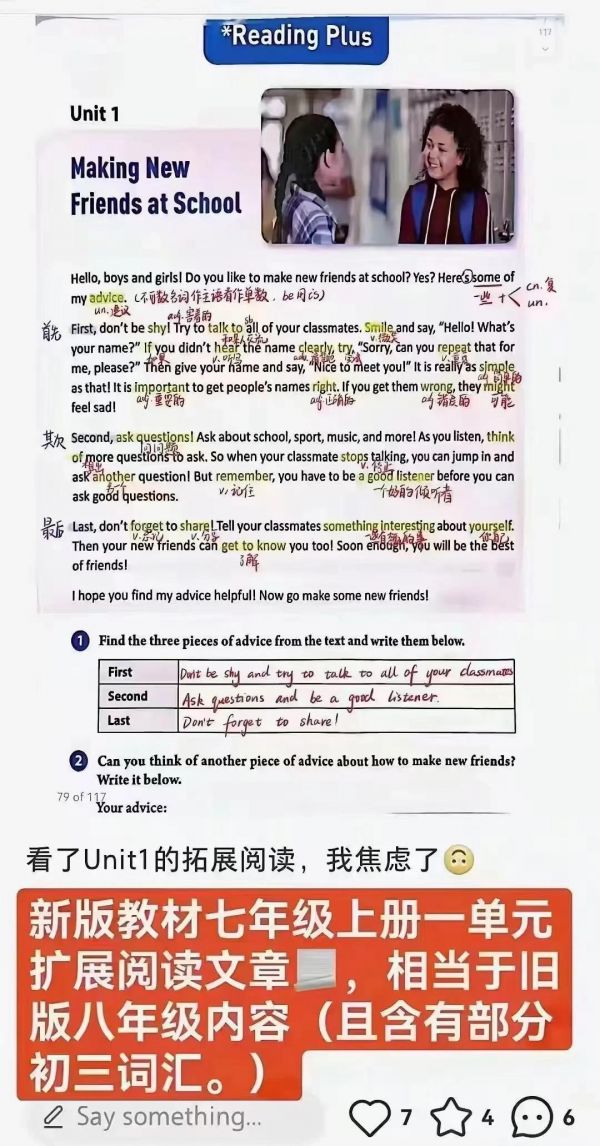 *Reading Plus
117
Unit 1
Making New
Friends at School
Hello, boys and girls! Do you like to make new friends at school? Yes? Here's some of
一些 + cn.复
un.
my advice. (不可数名词作主语看作单数, be用is)
un.建议
adj.害羞的
sb
首先 First, don't be shy! Try to talk to all of your classmates. Smile and say, "Hello! What's
v.微笑
your name?" If you didn't hear the name clearly, try, "Sorry, can you repeat that for
如果
v.听到
v.重复
me, please?" Then give your name and say, "Nice to meet you!" It is really as simple
adj.简单的
as that! It is important to get people's names right. If you get them wrong, they might
adj.重要的
adj.正确的
可能
feel sad!
其次 Second, ask questions! Ask about school, sport, music, and more! As you listen, think
问问题
of more questions to ask. So when your classmate stops talking, you can jump in and
想出
v.停止
ask another question! But remember, you have to be a good listener before you can
v.记住
一个好的倾听者
ask good questions.
最后 Last, don't forget to share! Tell your classmates something interesting about yourself.
v.忘记
v.分享
你自己
Then your new friends can get to know you too! Soon enough, you will be the best
了解
of friends!
I hope you find my advice helpful! Now go make some new friends!
1 Find the three pieces of advice from the text and write them below.
First Don't be shy and try to talk to all of your classmates
Second Ask questions and be a good listener.
Last Don't forget to share!
2 Can you think of another piece of advice about how to make new friends?
Write it below.
79 of 117
Your advice:
看了Unit1的拓展阅读，我焦虑了🙃
新版教材七年级上册一单元
扩展阅读文章📃，相当于旧
版八年级内容（且含有部分
初三词汇。）
Say something...
7
4
6